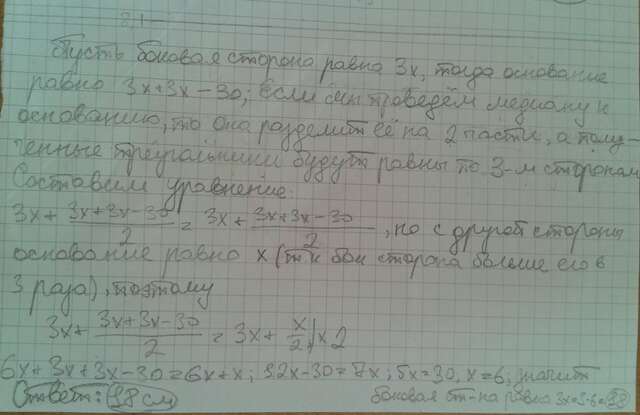 2.1
Пусть боковая сторона равна 3х, тогда основание
равно 3х+3х-30; Если мы проведём медиану к
основанию, то она разделит её на 2 части, а полу-
ченные треугольники будут равны по 3-м сторонам
Составим уравнение:
3х + (3х+3х-30)/2 = 3х + (3х+3х-30)/2, но с другой стороны
основание равно х (т к бок сторона больше его в
3 раза), поэтому
3х + (3х+3х-30)/2 = 3х + х/2 | х 2
6х + 3х + 3х - 30 = 6х + х; 12х-30 = 7х; 5х=30, х=6; значит
Ответ: 18 см боковая ст-на равна 3х=3·6=18